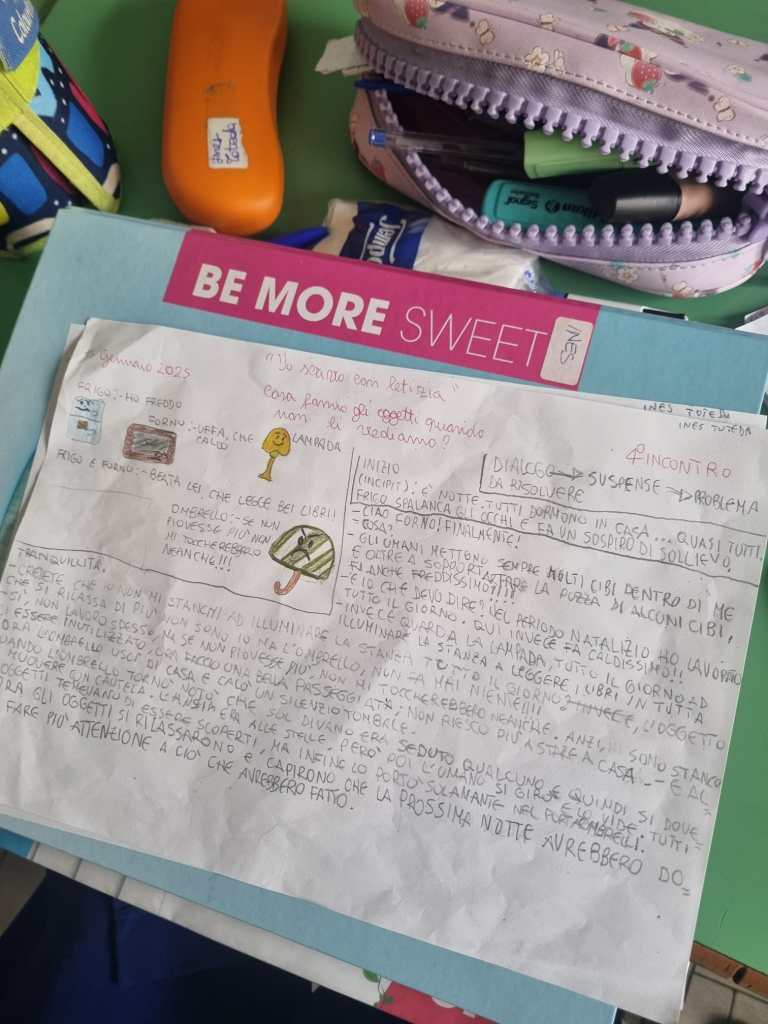 Colours
Ines
Toteda
Signal
Pelikan
Tempo
BE MORE SWEET
INES
Gennaio 2025
"Io scrivo con letizia"
Cosa fanno gli oggetti quando
non li vediamo?
INES TOTEDA
INES TOTEDA
4° INCONTRO
FRIGO:-HO FREDDO
FORNO:-UFFA, CHE
CALDO
LAMPADA
FRIGO E FORNO:-BEATA LEI, CHE LEGGE BEI LIBRI!
OMBRELLO:-SE NON
PIOVESSE PIÙ NON
MI TOCCHEREBBERO
NEANCHE!!!
DIALOGO → SUSPENSE → PROBLEMA
DA RISOLVERE
INIZIO
(INCIPIT): È NOTTE. TUTTI DORMONO IN CASA... QUASI TUTTI.
FRIGO SPALANCA GLI OCCHI E FA UN SOSPIRO DI SOLLIEVO.
-CIAO FORNO! FINALMENTE!
-COSA?
-GLI UMANI METTONO SEMPRE MOLTI CIBI DENTRO DI ME
E OLTRE A SOPPORTARE LA PUZZA DI ALCUNI CIBI,
FA ANCHE FREDDISSIMO!!!!
-E IO CHE DEVO DIRE? NEL PERIODO NATALIZIO HO LAVORATO
TUTTO IL GIORNO. QUI INVECE FA CALDISSIMO!!
-INVECE GUARDA LA LAMPADA, TUTTO IL GIORNO AD
ILLUMINARE LA STANZA A LEGGERE I LIBRI IN TUTTA
TRANQUILLITÀ.
-CREDETE CHE IO NON MI STANCHI AD ILLUMINARE LA STANZA TUTTO IL GIORNO? INVECE, L'OGGETTO
CHE SI RILASSA DI PIÙ NON SONO IO MA L'OMBRELLO, NON FA MAI NIENTE!!!
-SÌ, NON LAVORO SPESSO MA SE NON PIOVESSE PIÙ, NON MI TOCCHEREBBERO NEANCHE. ANZI, SONO STANCO
DI ESSERE INUTILIZZATO. ORA FACCIO UNA BELLA PASSEGGIATA, NON RIESCO PIÙ A STARE A CASA.-- E AL=
LORA L'OMBRELLO USCÌ DI CASA E CALÒ UN SILENZIO TOMBALE.
QUANDO L'OMBRELLO TORNÒ NOTÒ CHE SUL DIVANO ERA SEDUTO QUALCUNO E QUINDI SI DOVE=
MUOVERE CON CAUTELA. L'ANSIA ERA ALLE STELLE. PERÒ POI L'UMANO SI GIRÒ E LO VIDE. TUTTI
OGGETTI TEMEVANO DI ESSERE SCOPERTI, MA INFINE LO PORTÒ SOLAMENTE NEL PORTAOMBRELLI.
ORA GLI OGGETTI SI RILASSARONO E CAPIRONO CHE LA PROSSIMA NOTTE AVREBBERO DO=
FARE PIÙ ATTENZIONE A CIÒ CHE AVREBBERO FATTO.